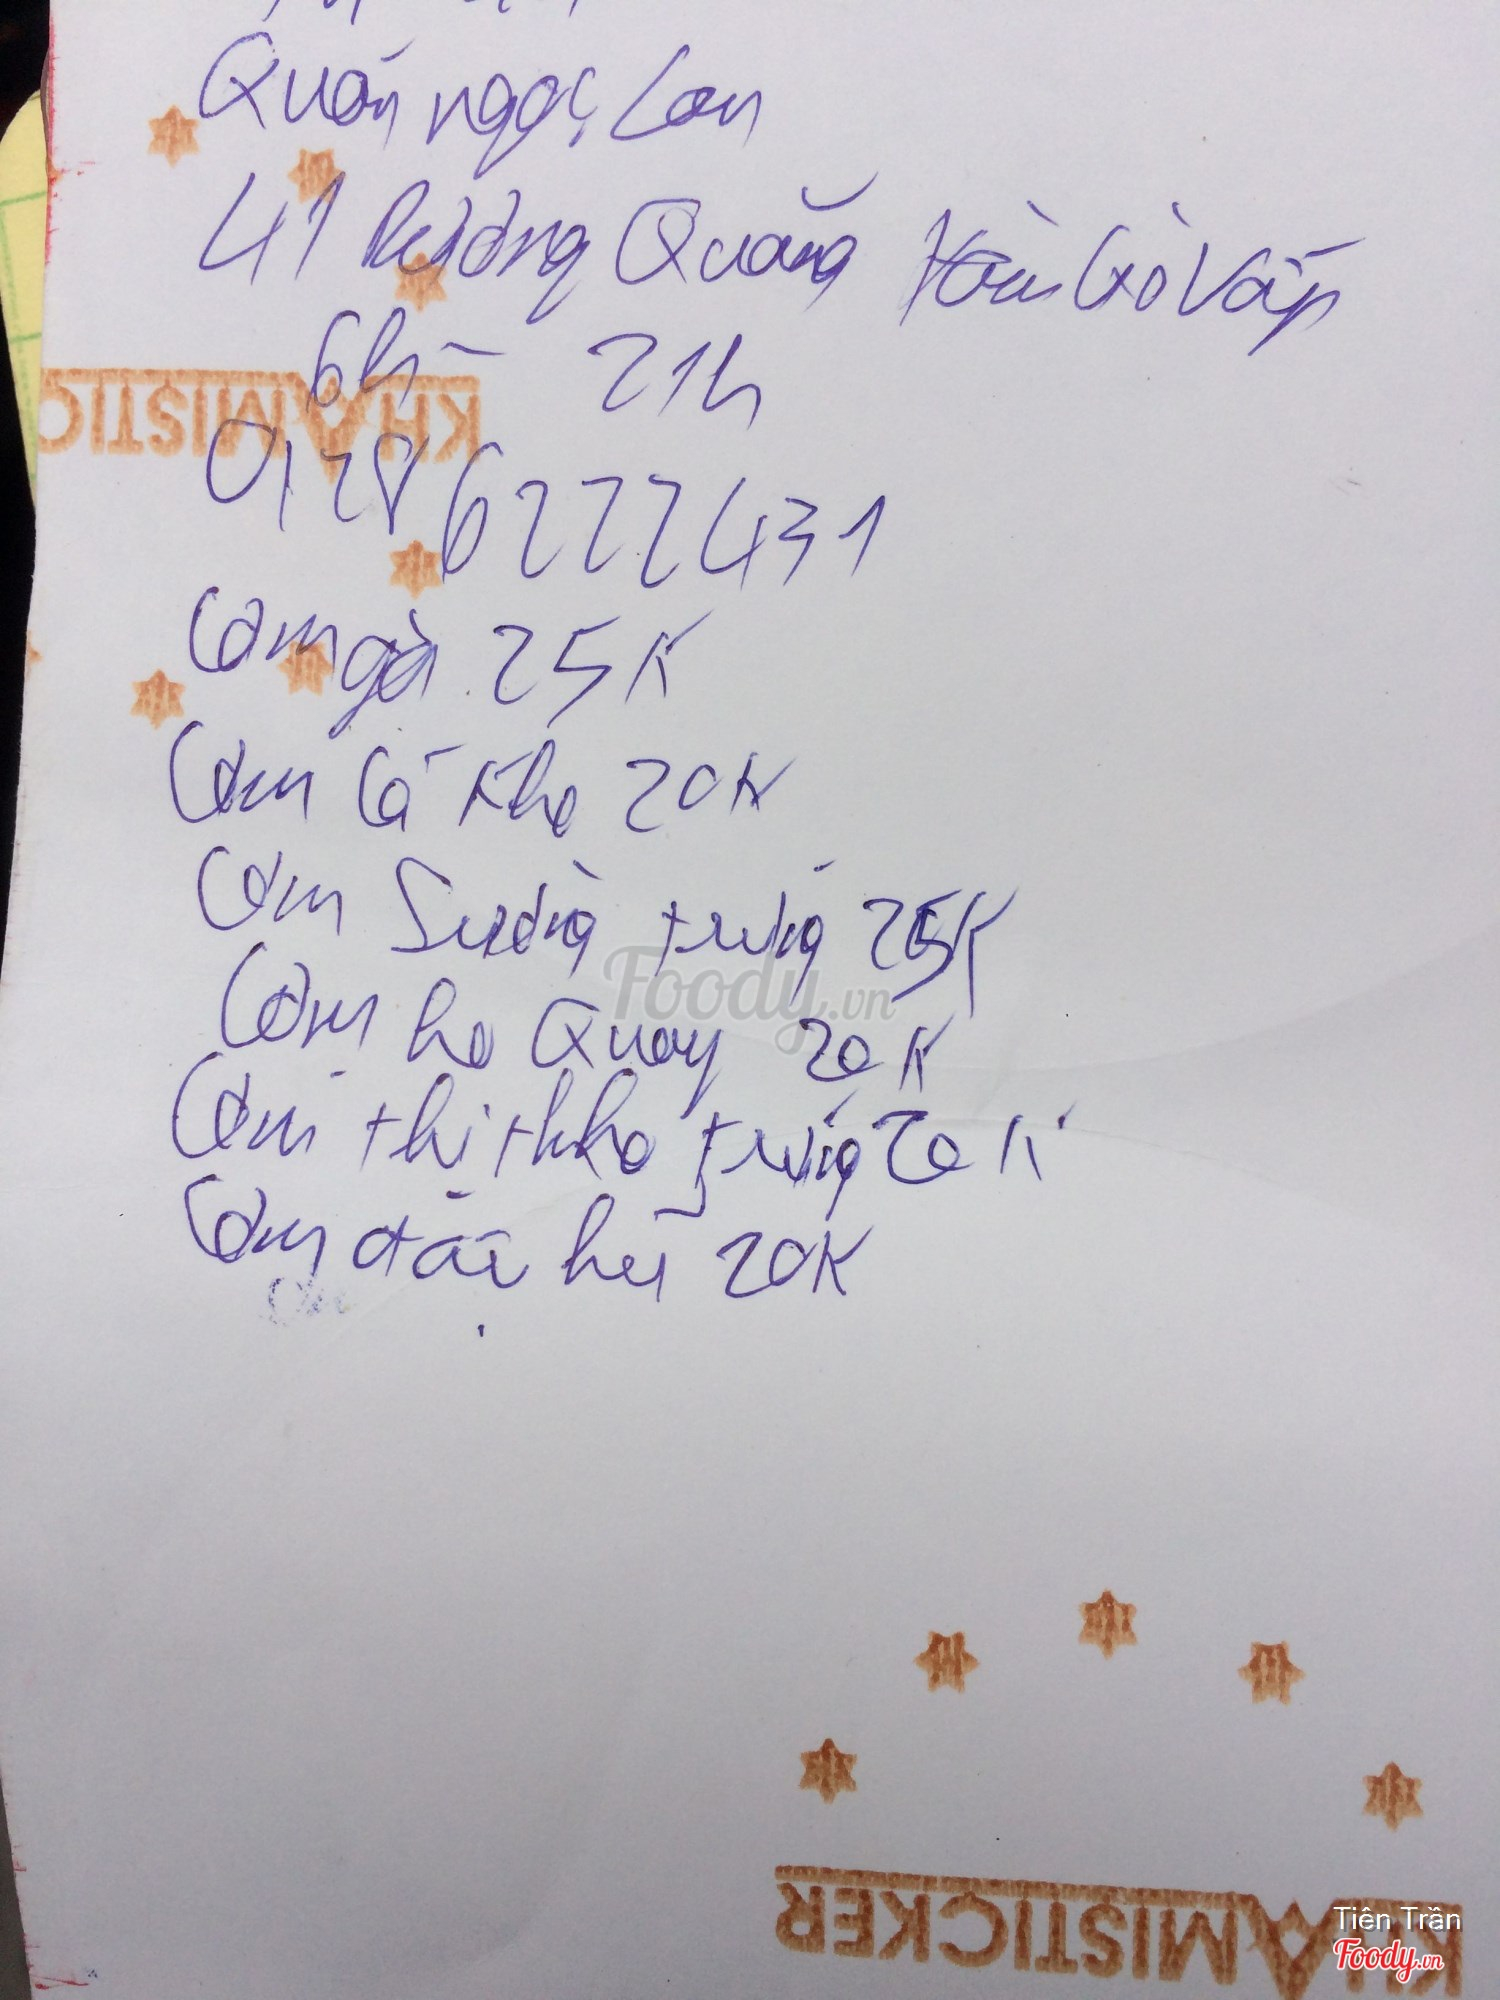 Quán ngọc Lan
41 Dương Quảng Hàm Gò Vấp
6h - 21h
01286222431
Cơm gà 25K
Cơm Cá Kho 20K
Cơm Sườn trứng 25K
Foody.vn
Cơm heo Quay 20K
Cơm thịt kho trứng 20K
Cơm đậu hũ 20K
KHAMISTIC
KHAMISTICKER
Tiên Trần
Foody.vn